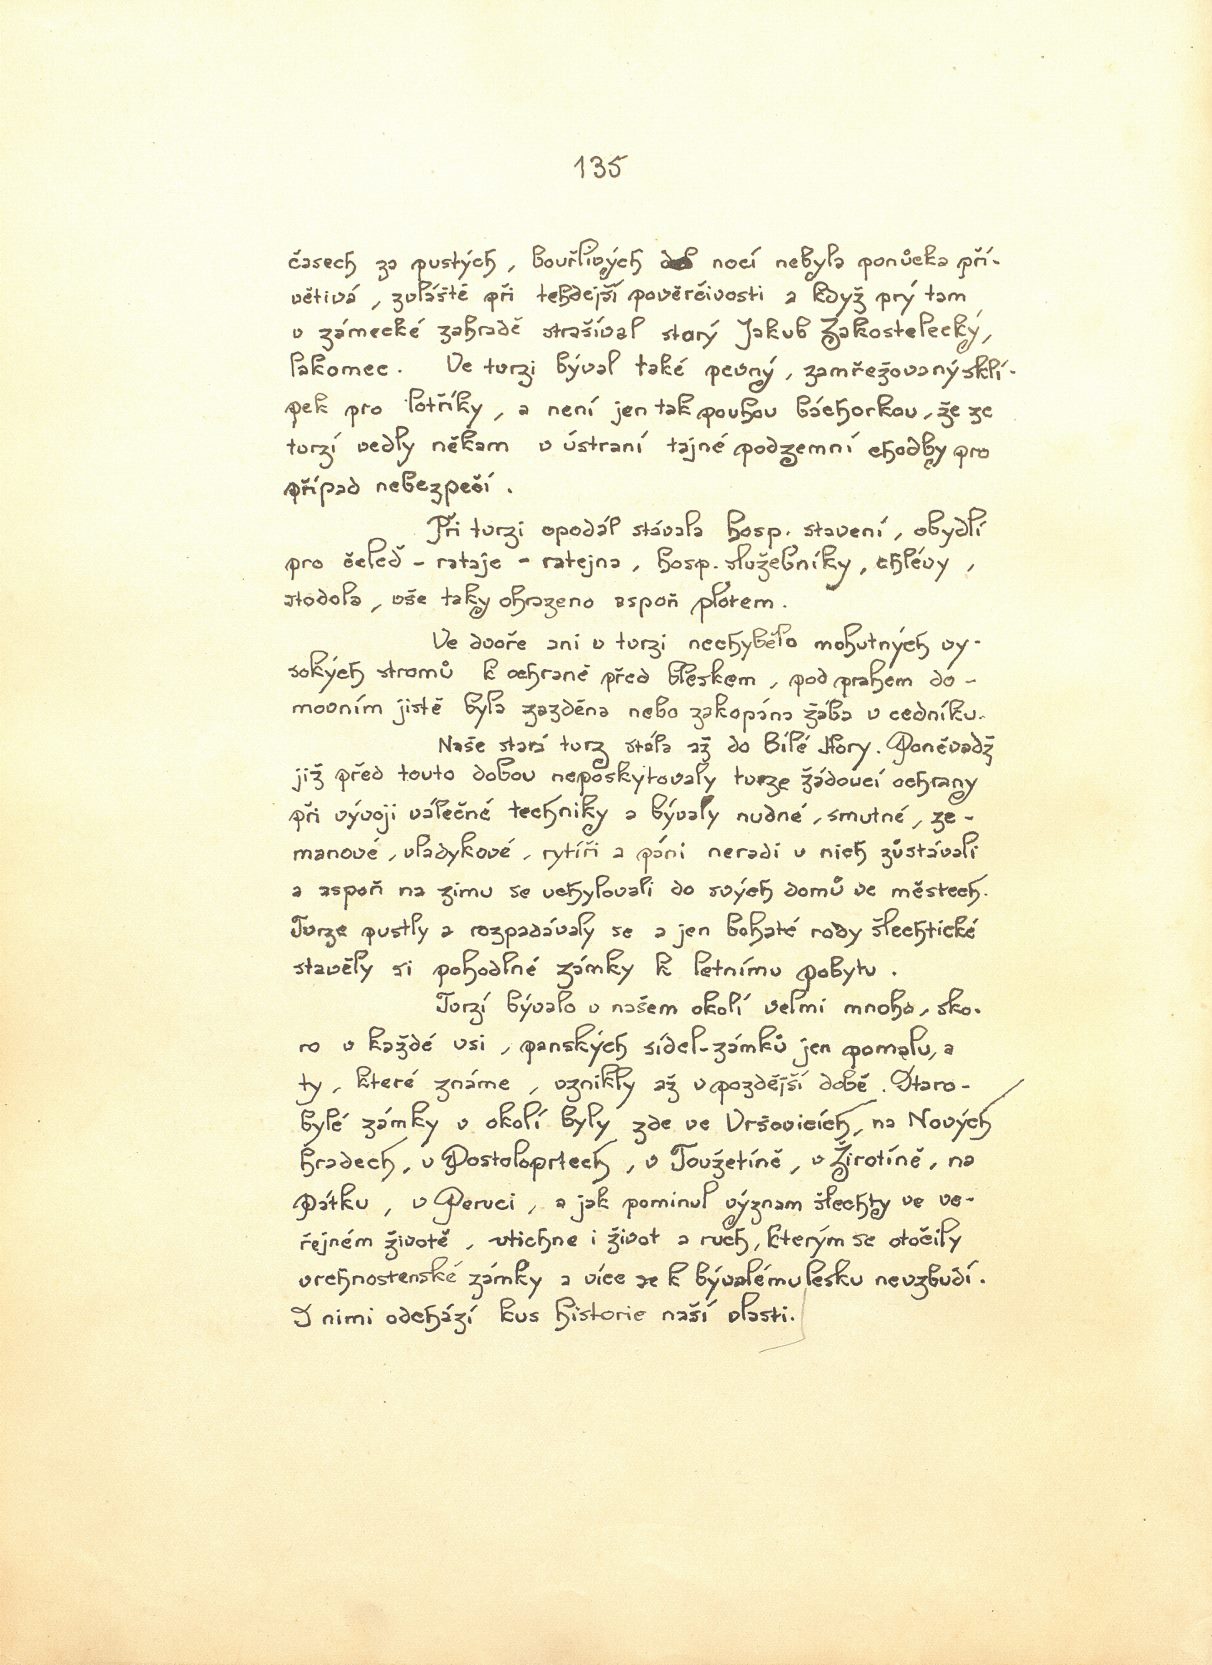 135
časech za pustých, bouřlivých nocí nebyla ponůcka pří-
větivá, zvláště při tehdejší pověrčivosti a když prý tam
v zámecké zahradě strašíval starý Jakub Zakostelecký,
lakomec. Ve turzi býval také pevný, zamřežovaný sklí-
pek pro lotříky, a není jen tak pouhou báchorkou, že ze
turzí vedly někam v ústraní tajné podzemní chodby pro
případ nebezpečí.
Při turzi opodál stávala hosp. stavení, obydlí
pro čeleď - rataje - ratejna, hosp. služebníky, chlévy,
stodola, vše taky ohrazeno aspoň plotem.
Ve dvoře ani v turzi nechybělo mohutných vy-
sokých stromů k ochraně před bleskem, pod prahem do-
movním jistě byla zazděna nebo zakopána žába v cedníku.
Naše stará turz stála až do Bílé Hory. Poněvadž
již před touto dobou neposkytovaly turze žádoucí ochrany
při vývoji válečné techniky a bývaly nudné, smutné, ze-
manové, vladykové, rytíři a páni neradi v nich zůstávali
a aspoň na zimu se uchylovali do svých domů ve městech.
Turze pustly a rozpadávaly se a jen bohaté rody šlechtické
stavěly si pohodlné zámky k letnímu pobytu.
Turzí bývalo v našem okolí velmi mnoho, sko-
ro v každé vsi, panských sídel-zámků jen pomalu, a
ty, které známe, vznikly až v pozdější době. Staro-
bylé zámky v okolí byly zde ve Vršovicích, na Nových
hradech, v Postoloprtech, v Toužetíně, v Žirotíně, na
Pátku, v Peruci, a jak pominul význam šlechty ve ve-
řejném životě, utichne i život a ruch, kterým se otočily
vrchnostenské zámky a více se k bývalému lesku nevzbudí.
S nimi odchází kus historie naší vlasti.